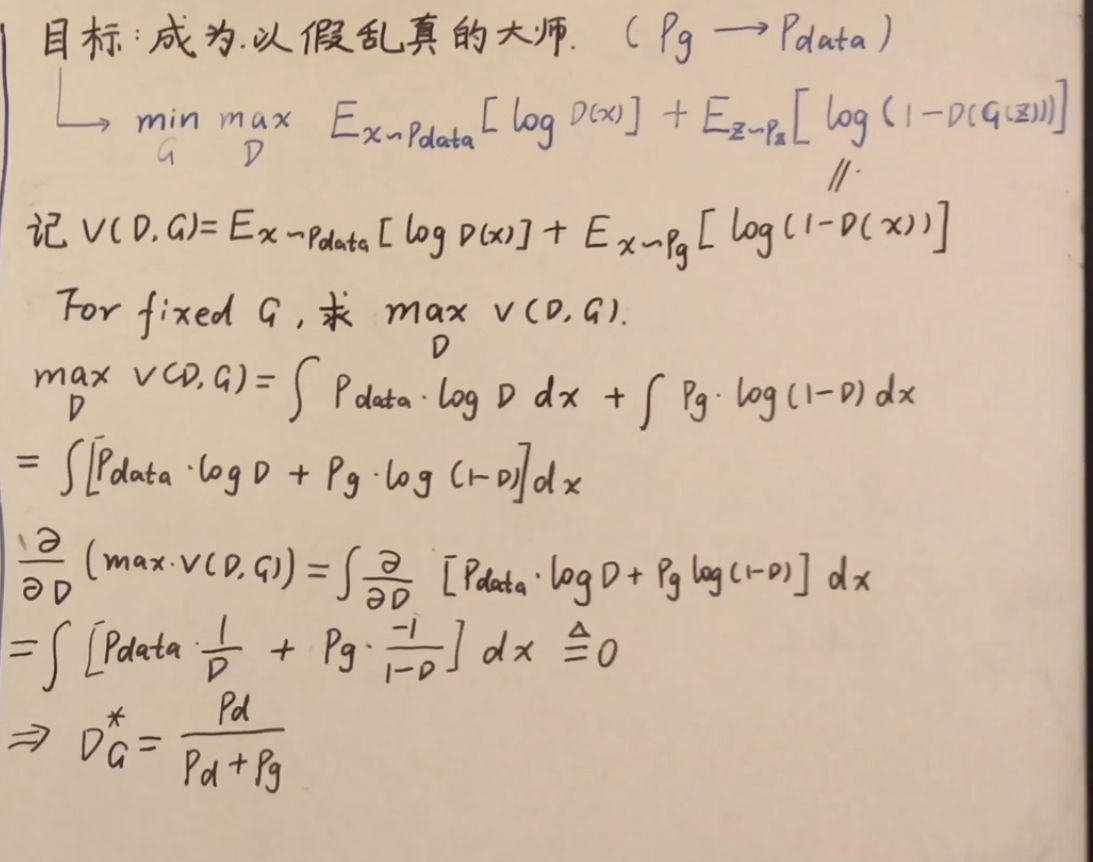 目标:成为.以假乱真的大师. (Pg → Pdata)
↳ min_G max_D E_{x~Pdata}[log D(x)] + E_{z~Pz}[log(1-D(G(z)))]
//.
记 V(D,G)= E_{x~Pdata}[log D(x)] + E_{x~Pg}[log(1-D(x))]
For fixed G, 求 max_D V(D,G).
max_D V(D,G) = ∫ Pdata · log D dx + ∫ Pg · log(1-D) dx
= ∫[Pdata · log D + Pg · log (1-D)] dx
∂/∂D (max·V(D,G)) = ∫ ∂/∂D [Pdata · log D + Pg log(1-D)] dx
= ∫ [Pdata · 1/D + Pg · -1/(1-D)] dx ≜ 0
⇒ D*_G = Pd/(Pd+Pg)